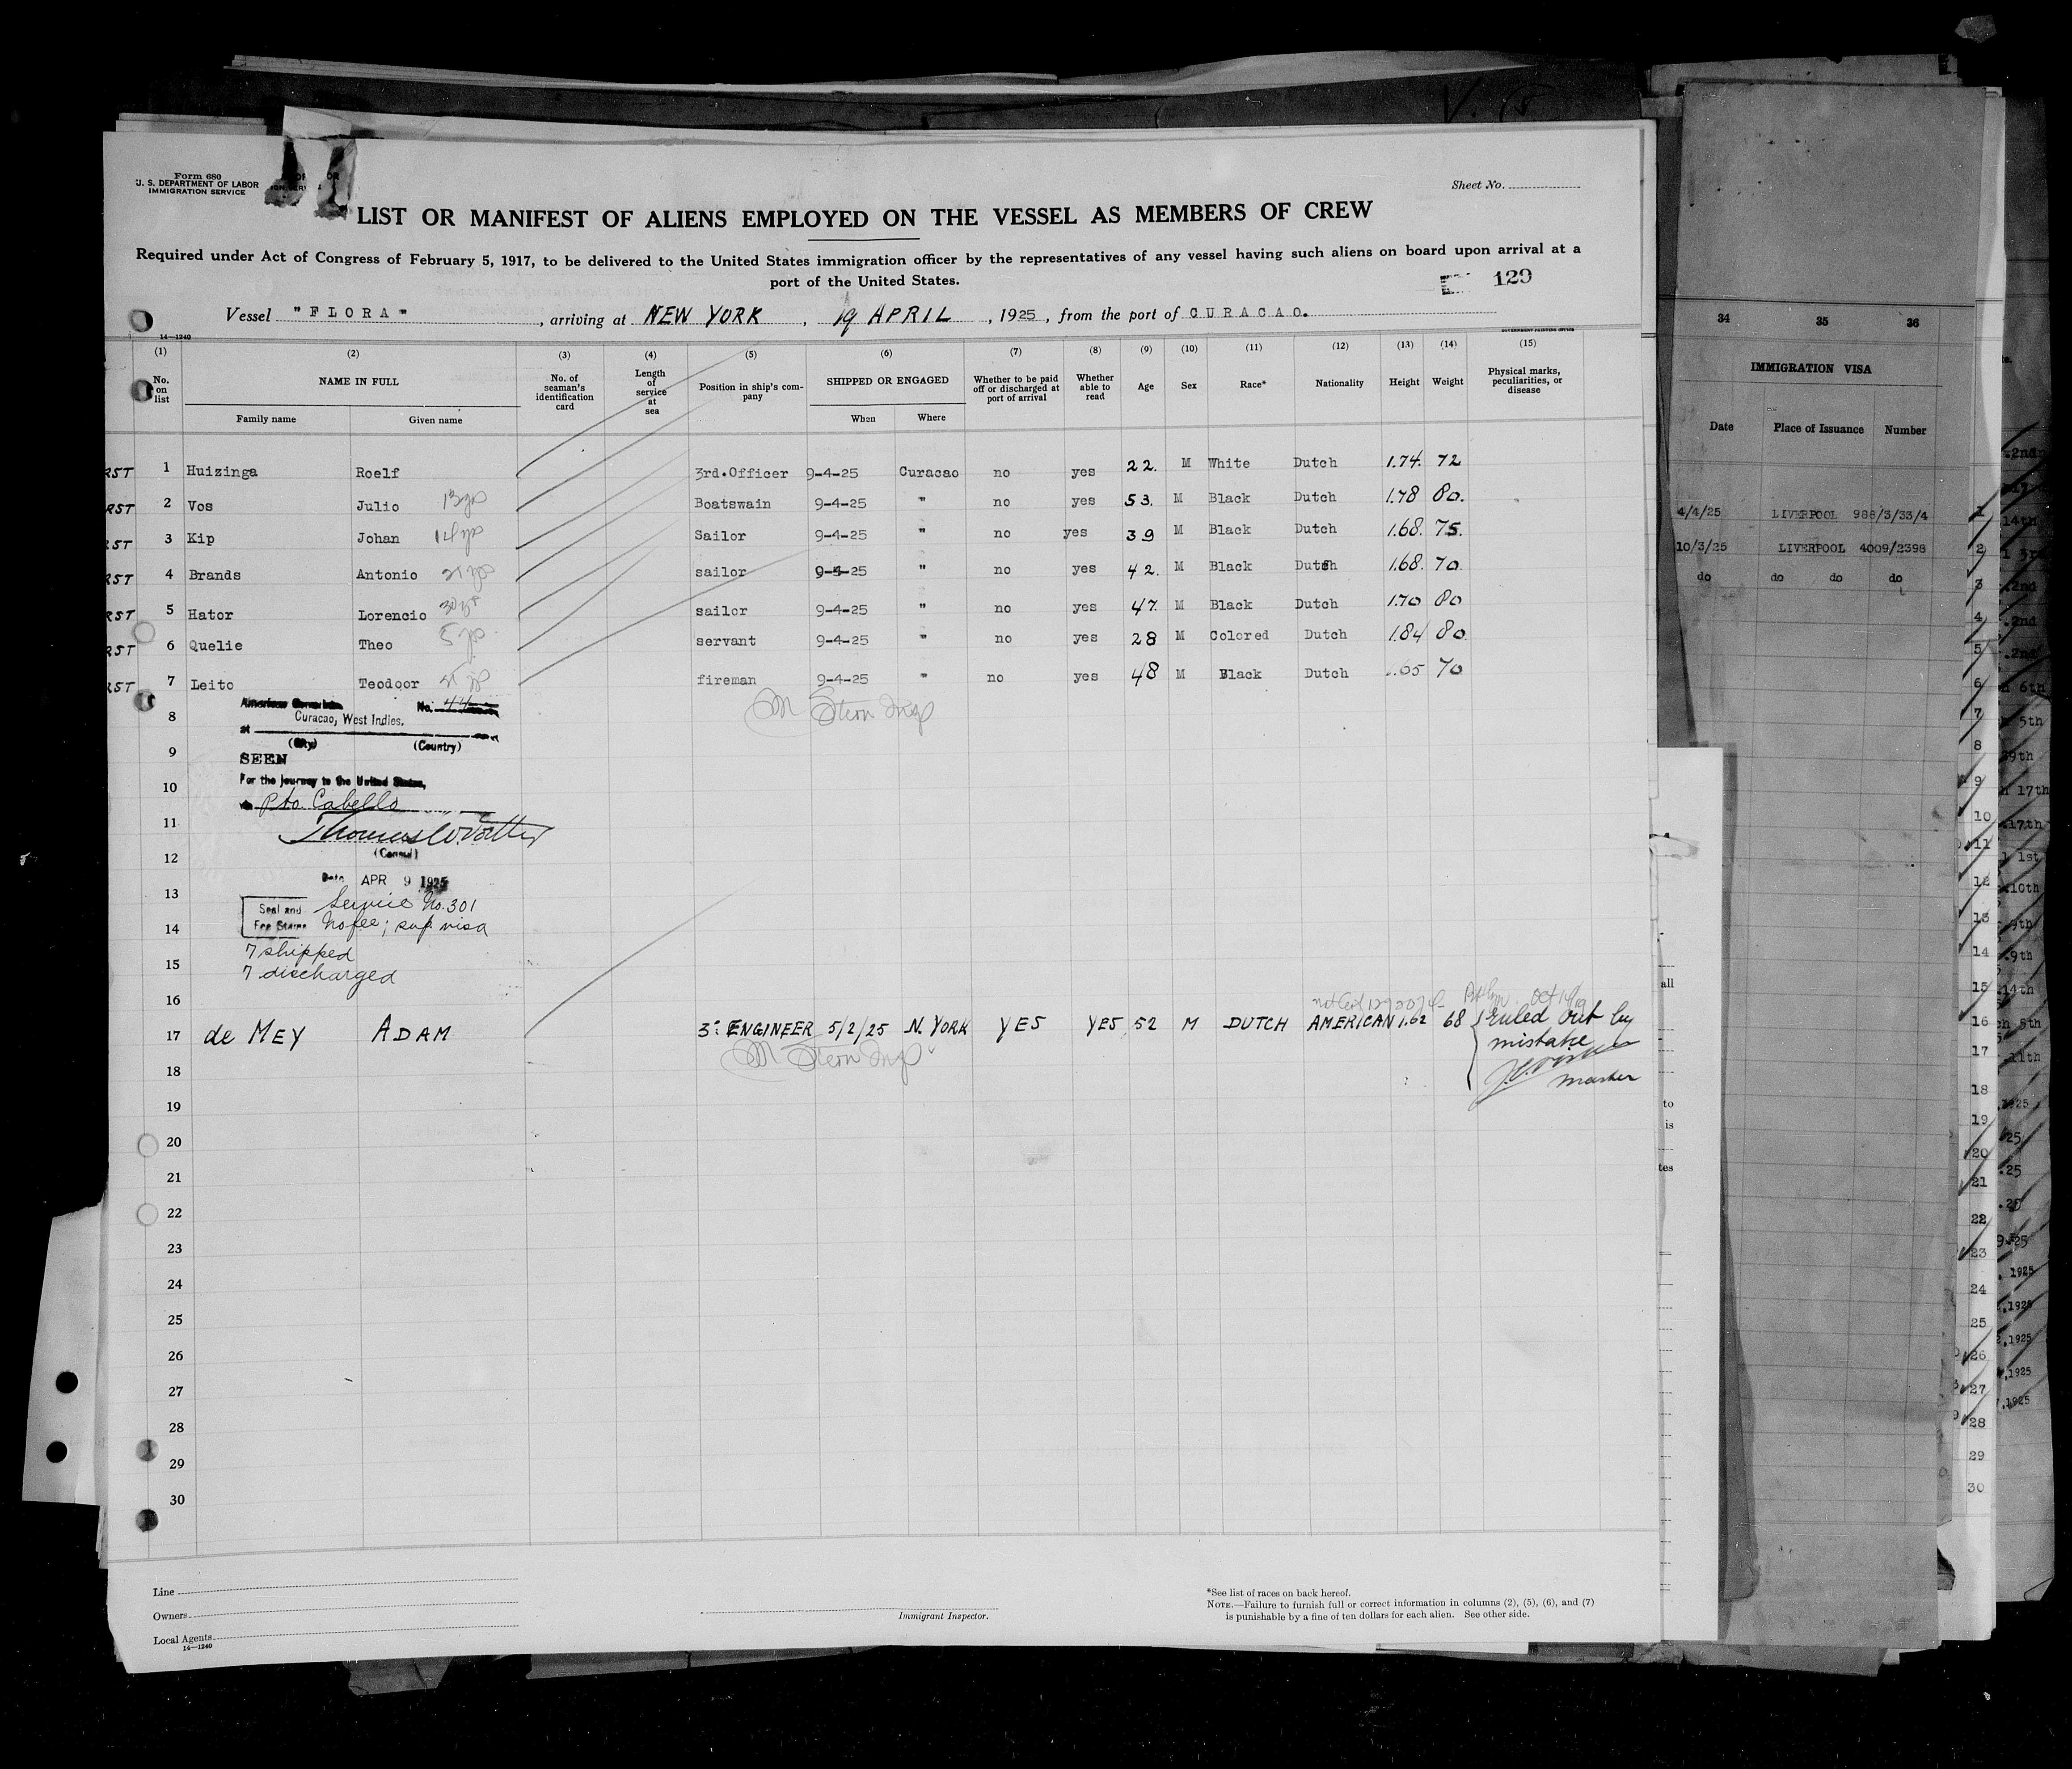 V. 15
Form 680
U. S. DEPARTMENT OF LABOR
IMMIGRATION SERVICE
Sheet No.
LIST OR MANIFEST OF ALIENS EMPLOYED ON THE VESSEL AS MEMBERS OF CREW
Required under Act of Congress of February 5, 1917, to be delivered to the United States immigration officer by the representatives of any vessel having such aliens on board upon arrival at a
port of the United States.
129
Vessel "FLORA", arriving at NEW YORK, 19 APRIL, 1925, from the port of CURACAO.
14—1240
GOVERNMENT PRINTING OFFICE
(1) (2) (3) (4) (5) (6) (7) (8) (9) (10) (11) (12) (13) (14) (15)
No. on list
NAME IN FULL
Family name
Given name
No. of seaman's identification card
Length of service at sea
Position in ship's company
SHIPPED OR ENGAGED
When
Where
Whether to be paid off or discharged at port of arrival
Whether able to read
Age
Sex
Race*
Nationality
Height
Weight
Physical marks, peculiarities, or disease
RST 1 Huizinga Roelf 3rd.Officer 9-4-25 Curacao no yes 22. M White Dutch 1.74. 72
RST 2 Vos Julio 13 yrs Boatswain 9-4-25 " no yes 53. M Black Dutch 1.78 80.
RST 3 Kip Johan 14 yrs Sailor 9-4-25 " no yes 39 M Black Dutch 1.68. 75.
RST 4 Brands Antonio 21 yrs sailor 9-4-25 " no yes 42. M Black Dutch 1.68. 70.
RST 5 Hator Lorencio 30 yrs sailor 9-4-25 " no yes 47. M Black Dutch 1.70 80
RST 6 Quelie Theo 5 yrs servant 9-4-25 " no yes 28 M Colored Dutch 1.84 80.
RST 7 Leito Teodoor fireman 9-4-25 " no yes 48 M Black Dutch 1.65 70
American Consulate No.
M Stern Insp
8
at Curacao, West Indies.
(City) (Country)
9
SEEN
For the journey to the United States,
10
via Pto. Cabello
11
Thomas W. Voetter
12
(Consul)
Date APR 9 1925
13
Seal and Fee Stamp
Service No. 301
14
No fee; sup. visa
7 shipped
15
7 discharged
16
17 de MEY ADAM 3e ENGINEER 5/2/25 N. YORK YES YES 52 M DUTCH AMERICAN 1.62 68 ruled out by
mistake
M Stern Insp
master
18
19
20
21
22
23
24
25
26
27
28
29
30
Line
Owners
Local Agents
14—1240
Immigrant Inspector.
*See list of races on back hereof.
NOTE.—Failure to furnish full or correct information in columns (2), (5), (6), and (7)
is punishable by a fine of ten dollars for each alien. See other side.
34 35 36
IMMIGRATION VISA
Date Place of Issuance Number
4/4/25 LIVERPOOL 988/3/33/4
10/3/25 LIVERPOOL 4009/2398
do do do do
all
to
is
tes
1
2
3
4
5
6
7
8
9
10
11
12
13
14
15
16
17
18
19
20
21
22
23
24
25
26
27
28
29
30